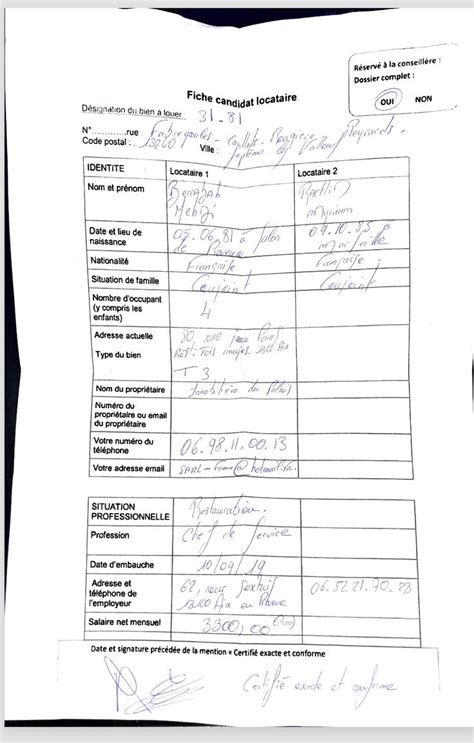 Réservé à la conseillère :
Dossier complet :
OUI NON
Fiche candidat locataire
Désignation du bien à louer : 31-81
N°............rue
Code postal : 13240 Ville :
IDENTITE Locataire 1 Locataire 2
Nom et prénom
Date et lieu de naissance 05.06.81 à Salon de Provence 09.10.83
Nationalité Française Française
Situation de famille Conjoint Conjoint
Nombre d'occupant (y compris les enfants) 4
Adresse actuelle 80, rue
Type du bien T3
Nom du propriétaire
Numéro du propriétaire ou email du propriétaire
Votre numéro du téléphone 06.98.11.00.13
Votre adresse email
SITUATION PROFESSIONNELLE Restauration.
Profession Chef de Service
Date d'embauche 10/09/19
Adresse et téléphone de l'employeur 62, 13100 Aix en Provence 06.52.21.70
Salaire net mensuel 3300,00
Date et signature précédée de la mention « Certifié exacte et conforme
Certifié exacte et conforme